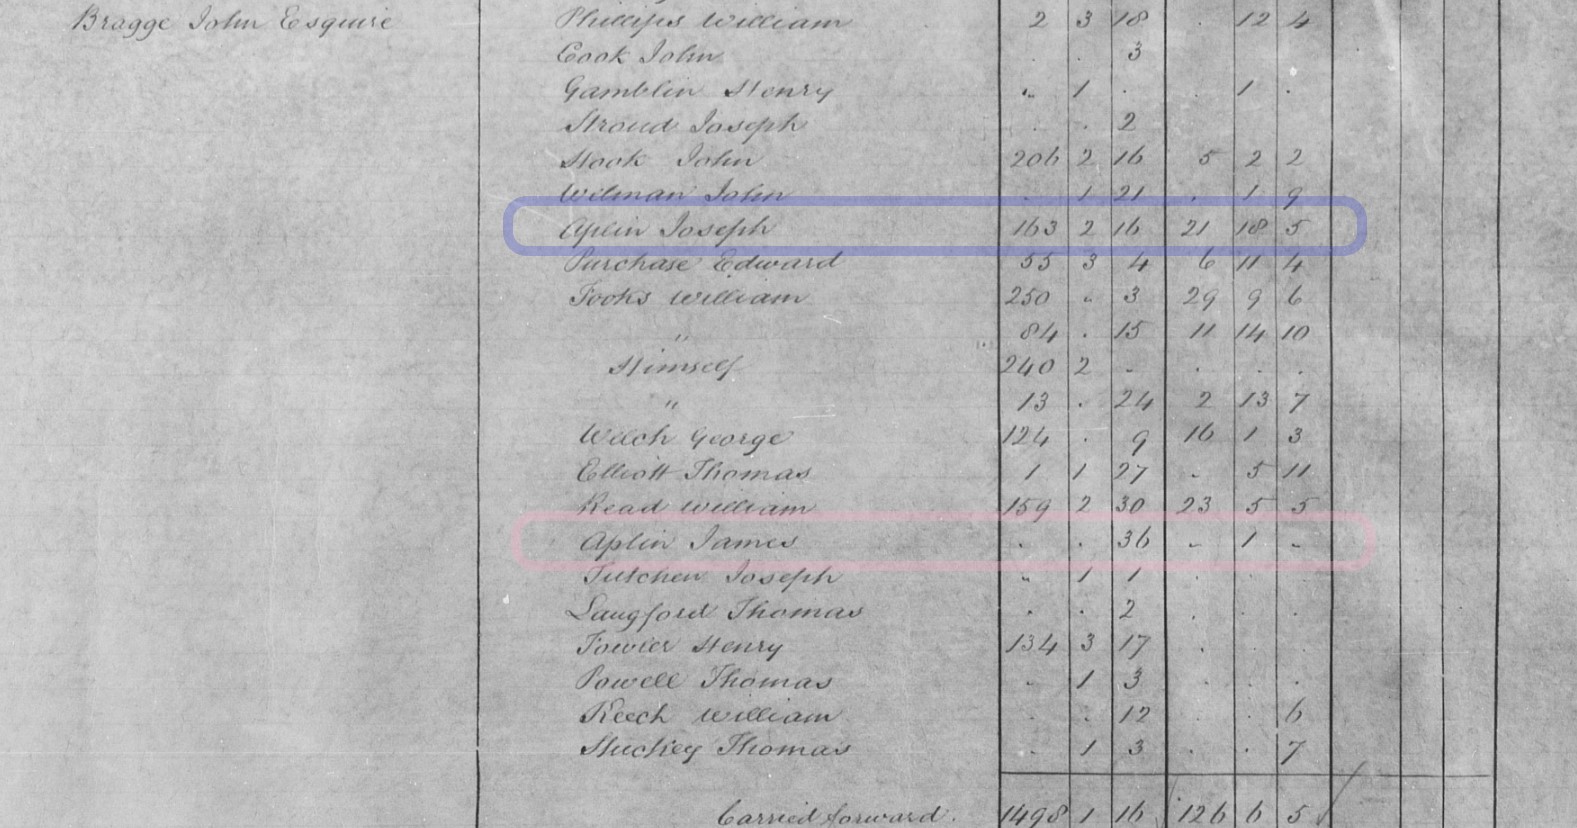 Bragge John Esquire Phillips William 2 3 18 . 12 4
Cook John . . 3
Gamblin Henry . 1 . . 1 .
Stroud Joseph . . 2
Hook John 206 2 16 5 2 2
Wilman John . 1 21 . 1 9
Aplin Joseph 163 2 16 21 18 5
Purchase Edward 55 3 4 6 11 4
Fooks William 250 . 3 29 9 6
" 84 . 15 11 14 10
Himself 240 2 . . . .
" 13 . 24 2 13 7
Welch George 124 . 9 16 1 3
Elliott Thomas 1 1 27 . 5 11
Read William 159 2 30 23 5 5
Aplin James . . 36 . 1 .
Tutchen Joseph . 1 1 . . .
Langford Thomas . . 2 . . .
Fowler Henry 134 3 17 . . .
Powell Thomas . 1 3 . . .
Keech William . . 12 . . 6
Stuckey Thomas . 1 3 . . 7
Carried forward. 1498 1 16 126 6 5